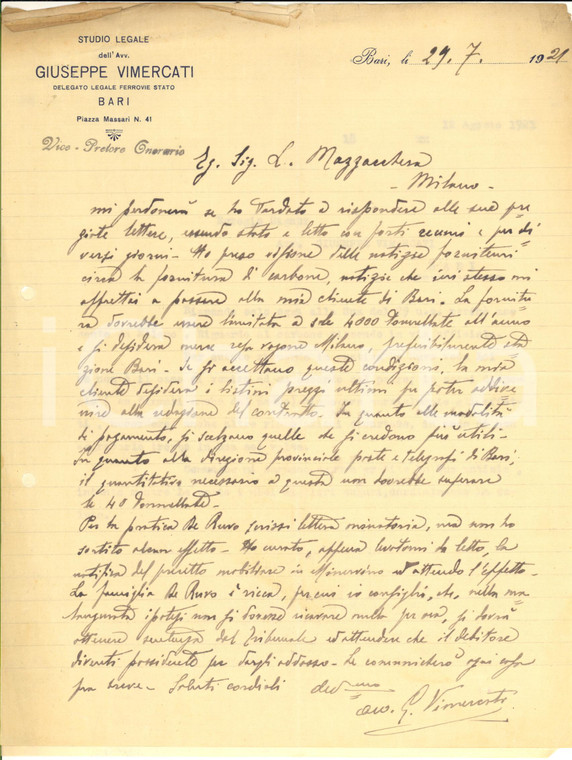 STUDIO LEGALE
dell'Avv.
GIUSEPPE VIMERCATI
DELEGATO LEGALE FERROVIE STATO
BARI
Piazza Massari N. 41
Vice - Pretore Onorario
Bari, li 29. 7. 1921
Eg. Sig. L. Mazzacchera
- Milano -
mi perdonerà se ho tardato a rispondere alle sue pre
giate lettere, essendo stato a letto con forti e per di
versi giorni - Ho preso visione delle notizie fornitemi
circa la fornitura di carbone, notizie che ieri stesso mi
affrettai a passare alla mia cliente di Bari. La fornitu
ra dovrebbe essere limitata a sole 4000 tonnellate all'anno
e si desidera merce resa vagone Milano, preferibilmente sta
zione Bari - Se si accettano queste condizioni, la mia
cliente desidera i listini prezzi ultimi per poter addive
nire alla redazione del contratto. In quanto alle modalità
di pagamento, si scelgano quelle che si credono più utili -
In quanto alla direzione provinciale poste e telegrafi di Bari,
il quantitativo necessario a questa non dovrebbe superare
le 40 tonnellate -
Per la pratica De Ruvo scrissi lettera minatoria, ma non ho
sortito alcun effetto - Ho curato, appena levatomi da letto, la
notifica del precetto mobiliare in Minervino ed attendo l'effetto -
La famiglia De Ruvo è ricca, per cui io consiglio, che, nella ma
laugurata ipotesi non si dovesse ricavare nulla per ora, si dovrà
ottenere sentenza dal Tribunale ed attendere che il debitore
diventi possidente per dargli addosso - Le comunicherò ogni cosa
fra breve - Saluti cordiali dev.mo
avv. G. Vimercati